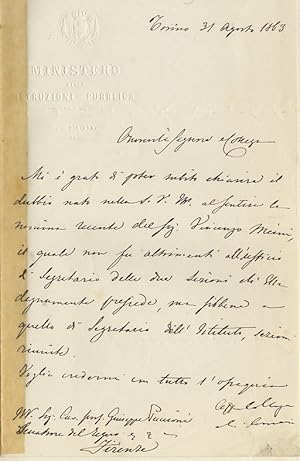 Torino 31 Agosto 1863
MINISTERO
ISTRUZIONE PUBBLICA
Onorevole Signore e Collega
Mi è grato di poter subito chiarire il
dubbio nato nella S. V. Ill. al sentire la
nomina recente del Sig. Vincenzo
il quale non fu altrimenti all'uffizio
di Segretario delle due sezioni ch'Ella
degnamente presiede, ma sibbene a
quello di Segretario dell'Istituto, sezioni
riunite.
Voglia credermi con tutto l'ossequio
Ill. Sig. Cav. prof. Giuseppe Puccioni
Senatore del Regno
Firenze